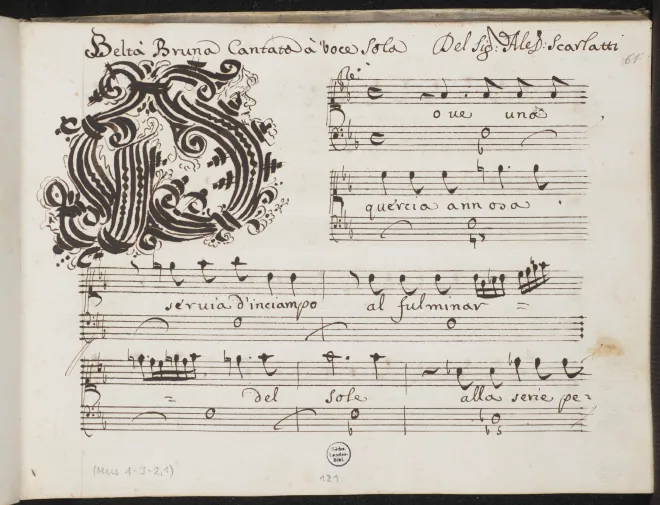 Beltà Bruna Cantata à Voce Sola Del Sig: Ales: Scarlatti
61
Re:
D
oue una
quercia annosa
seruia d'inciampo al fulminar =
= del sole alla serie pe=
Sächs.
Landes-
Bibl.
(Mus 1-3-2,1)
121